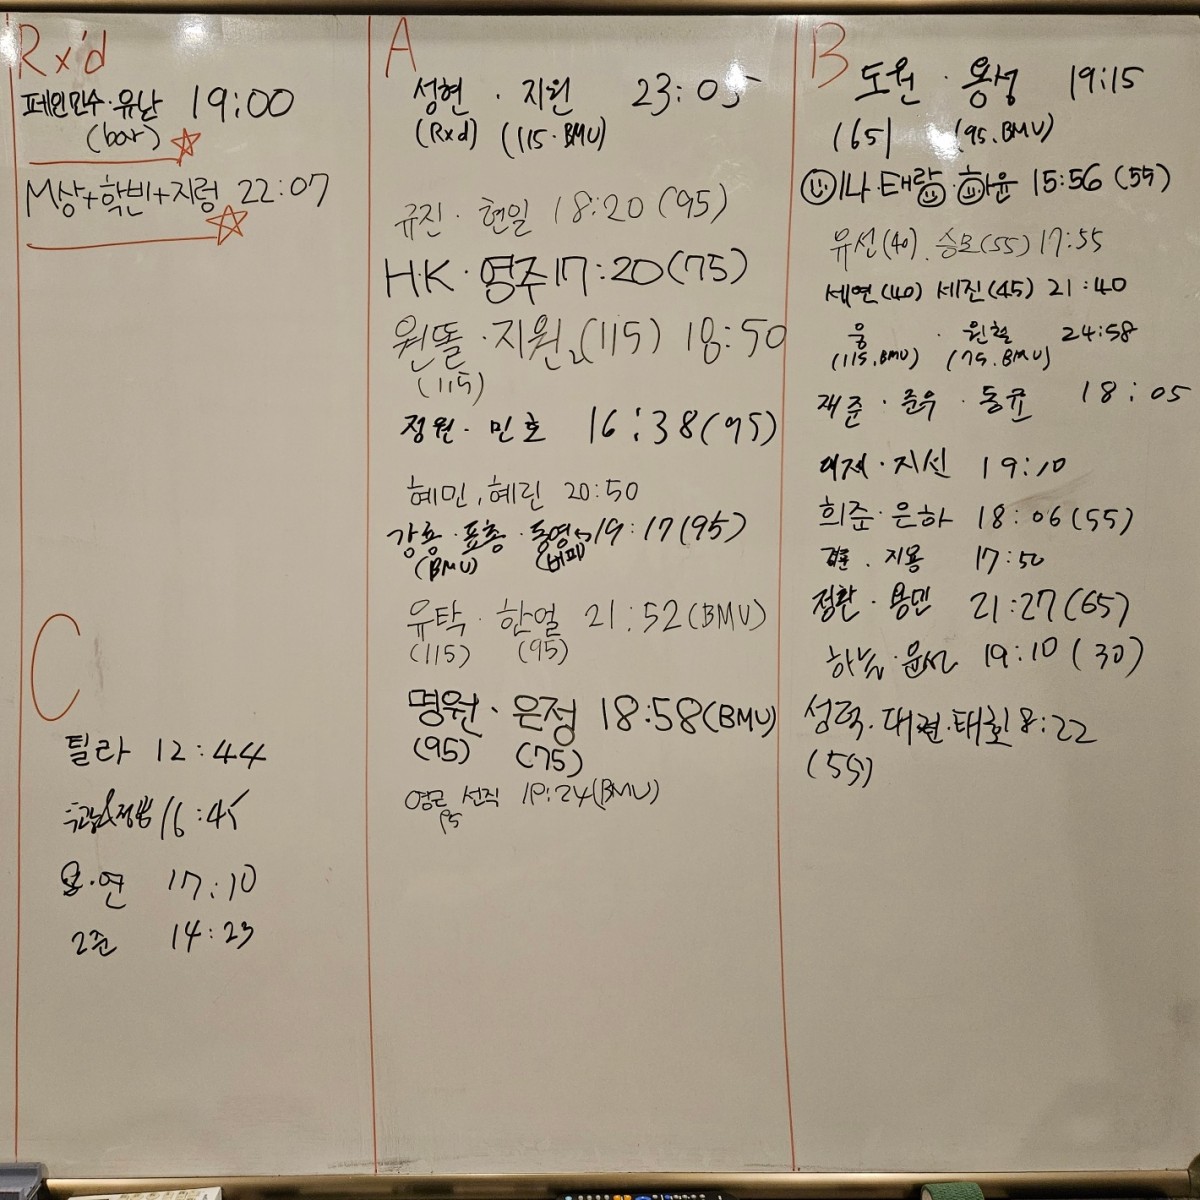 Rx'd
페인민수·유난 19:00
(bar)
M상+학빈+지렁 22:07
A
성현 · 지원 23:05
(Rxd) (115·BMU)
규진·현일 18:20(95)
H·K·영주 17:20(75)
원똘·지원2(115) 18:50
(115)
정원·민호 16:38(95)
혜민,혜린 20:50
강용·표총·동영 19:17(95)
(BMU) (버피)
유탁·한얼 21:52(BMU)
(115) (95)
명원·은정 18:58(BMU)
(95) (75)
영근 선직 19:24(BMU)
95
B
도원·용성 19:15
(65) (95.BMU)
이나·태람·하윤 15:56(55)
유선(40).승모(55) 17:55
세연(40) 세진(45) 21:40
웅 · 원철 24:58
(115.BMU) (75.BMU)
재준·준우·동균 18:05
지선 19:10
희준·은하 18:06(55)
지용 17:50
정환·용민 21:27(65)
하늘·윤서 19:10(30)
성력·대현·태호 8:22
(55)
C
틸라 12:44
16:45
연 17:10
2준 14:23